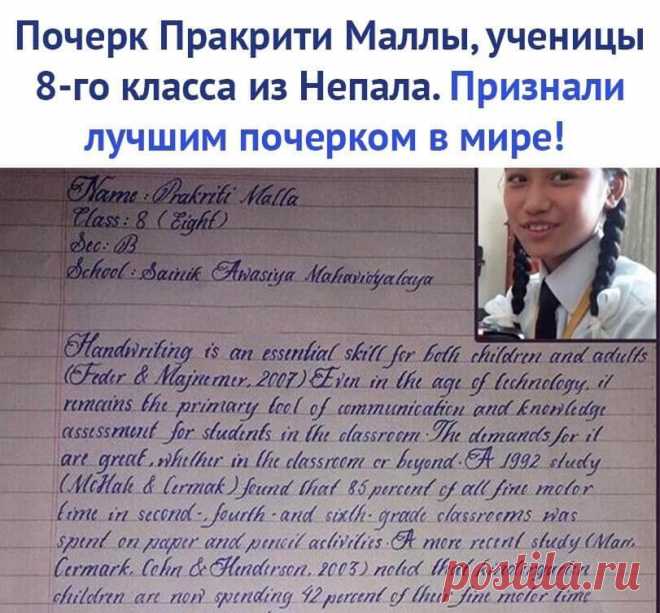 Почерк Пракрити Маллы, ученицы
8-го класса из Непала. Признали
лучшим почерком в мире!
Name : Prakriti Malla
Class : 8 ( Eight )
Sec : B
School : Sainik Awasiya Mahavidyalaya
Handwriting is an essential skill for both children and adults
(Feder & Majnemer, 2007) Even in the age of technology, it
remains the primary tool of communication and knowledge
assessment for students in the classroom. The demands for it
are great, whether in the classroom or beyond. A 1992 study
(McHale & Cermak) found that 85 percent of all fine motor
time in second-, fourth - and sixth- grade classrooms was
spent on paper and pencil activities. A more recent study (Marr,
Cermark, Cohn & Henderson, 2003) noted that
children are now spending 42 percent of their fine motor time
postila.ru